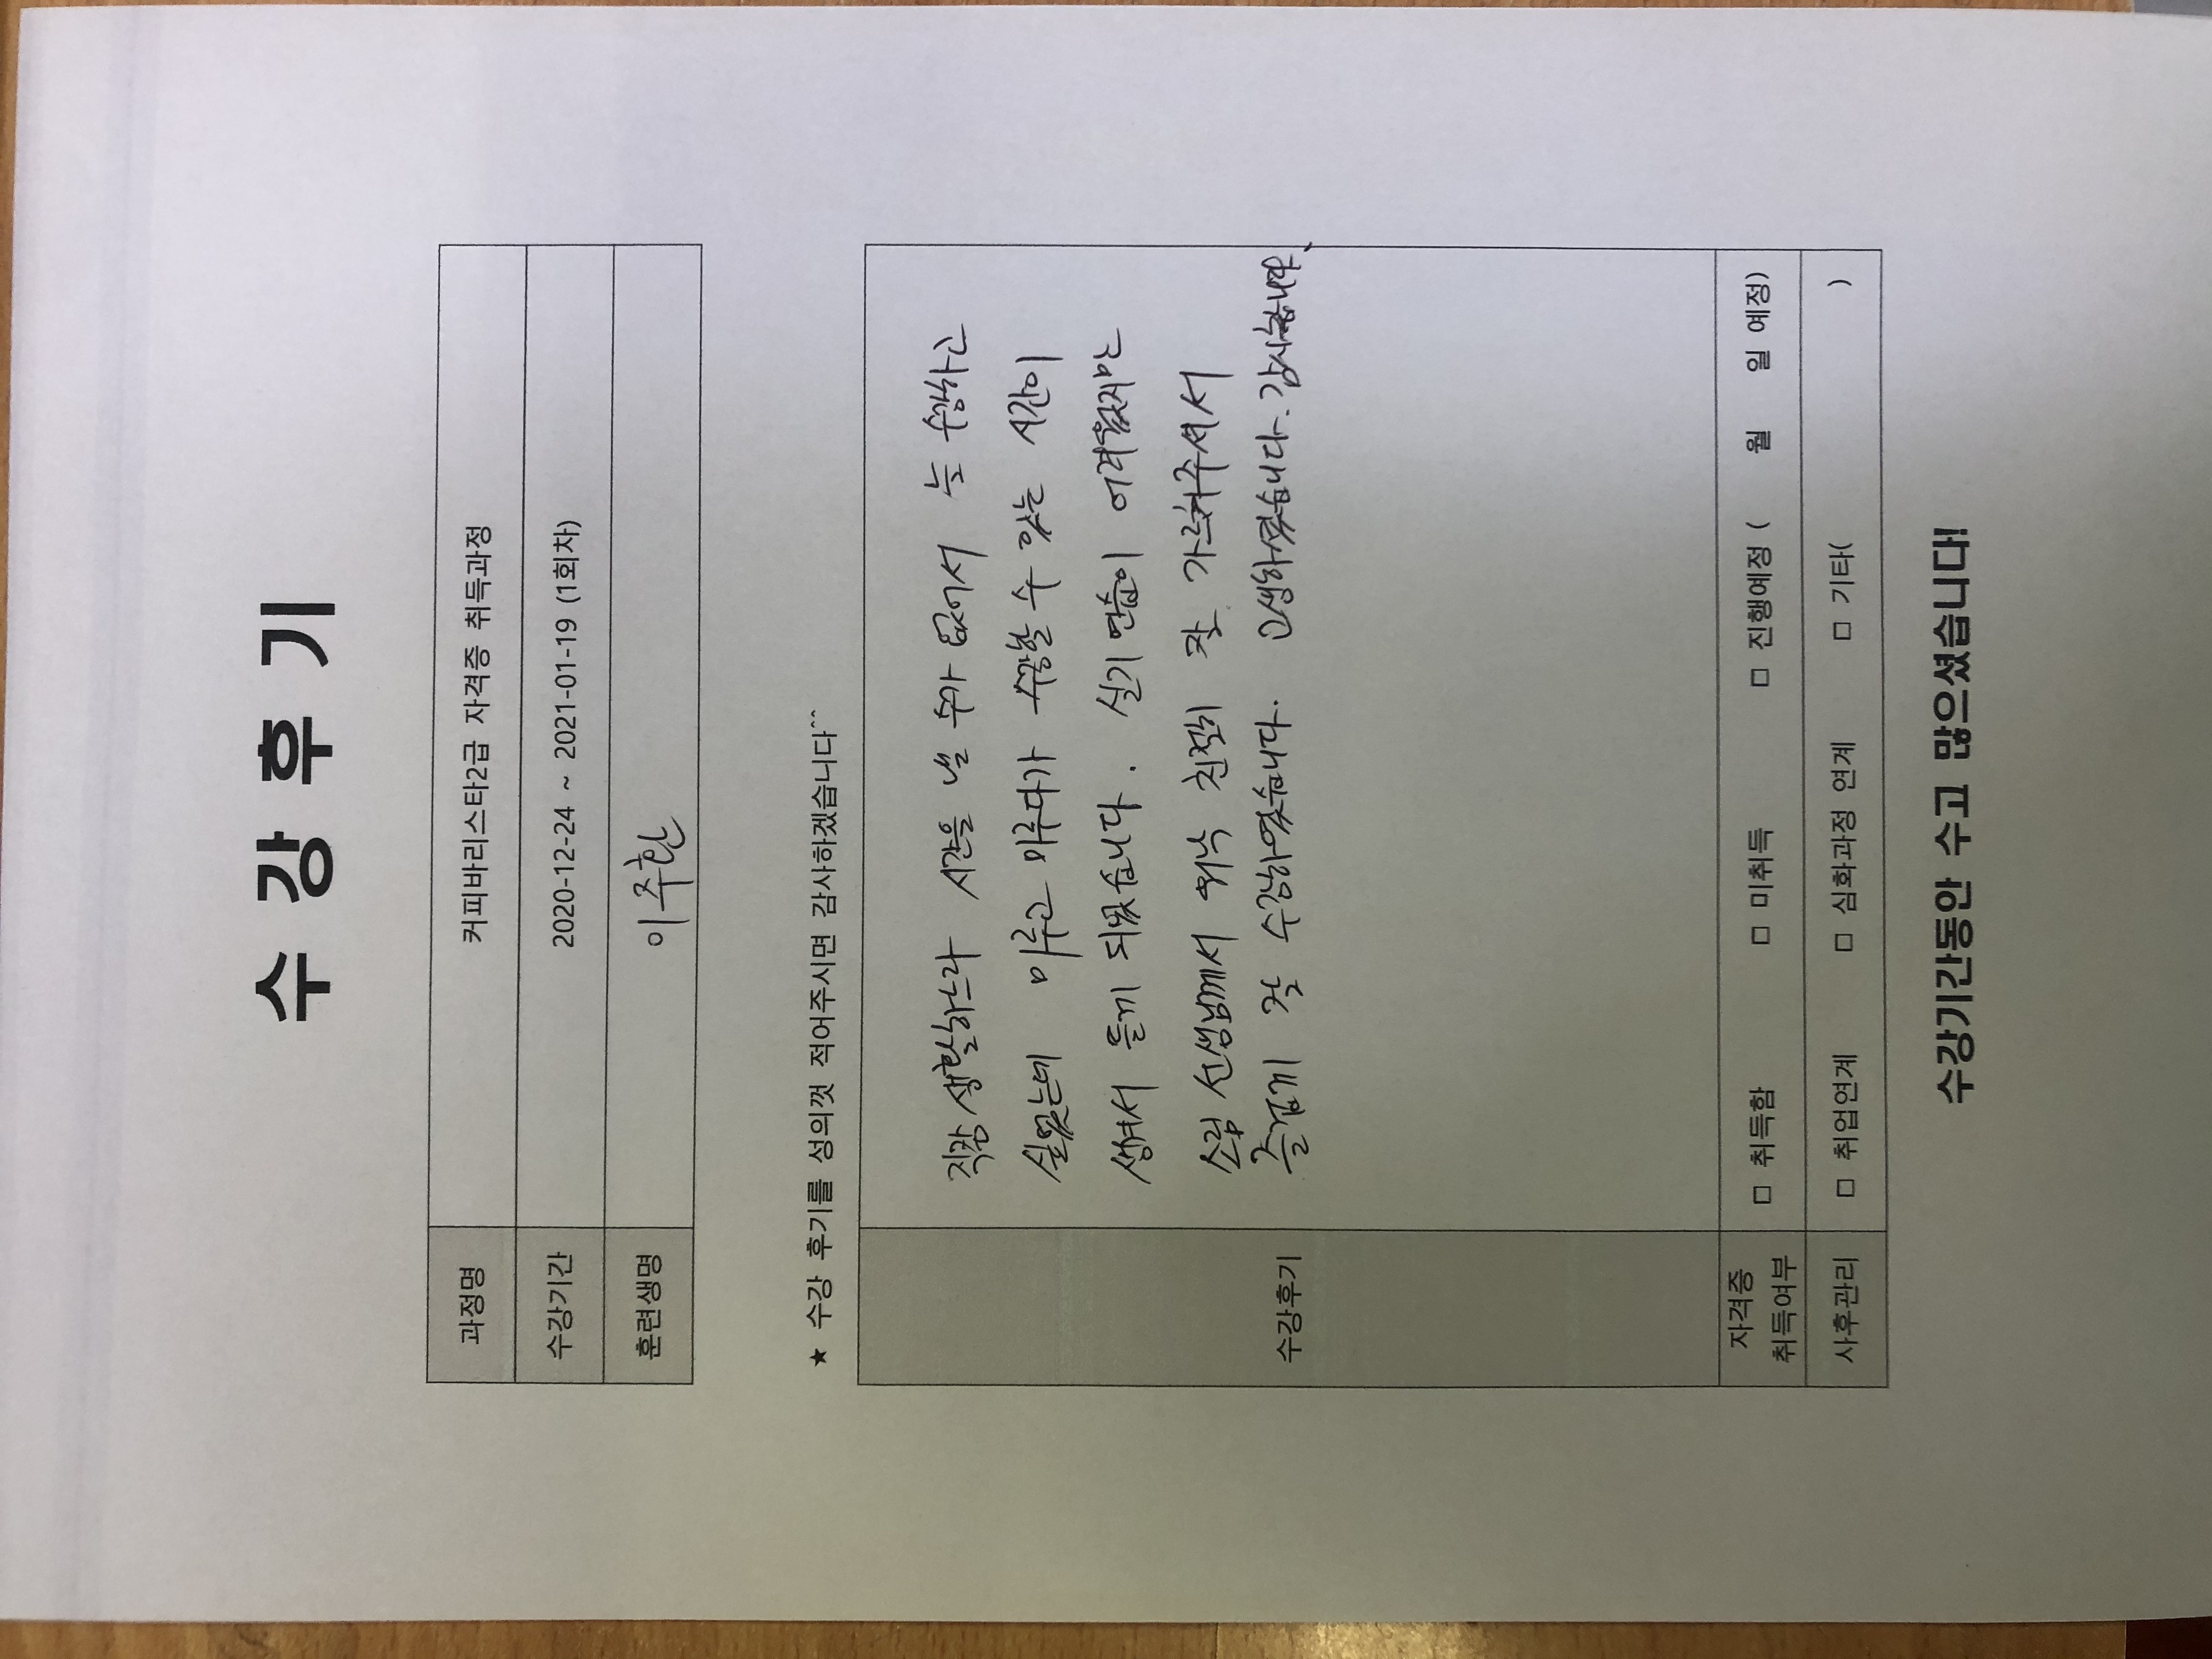 수 강 후 기
과정명 커피바리스타2급 자격증 취득과정
수강기간 2020-12-24 ~ 2021-01-19 (1회차)
훈련생명 이주환
★ 수강 후기를 성의껏 적어주시면 감사하겠습니다^^
수강후기
직장생활하느라 시간을 낼 수가 없어서 늘 수강하고
싶었는데 미루고 미루다가 수강할 수 있는 시간이
생겨서 듣게 되었습니다. 실기 연습이 어려웠지만
소림 선생님께서 워낙 친절히 잘 가르쳐주셔서
즐겁게 잘 수강하였습니다. 고생하셨습니다. 감사합니다.
자격증 취득여부 □ 취득함 □ 미취득 □ 진행예정 ( 월 일 예정)
사후관리 □ 취업연계 □ 심화과정 연계 □ 기타( )
수강기간동안 수고 많으셨습니다!